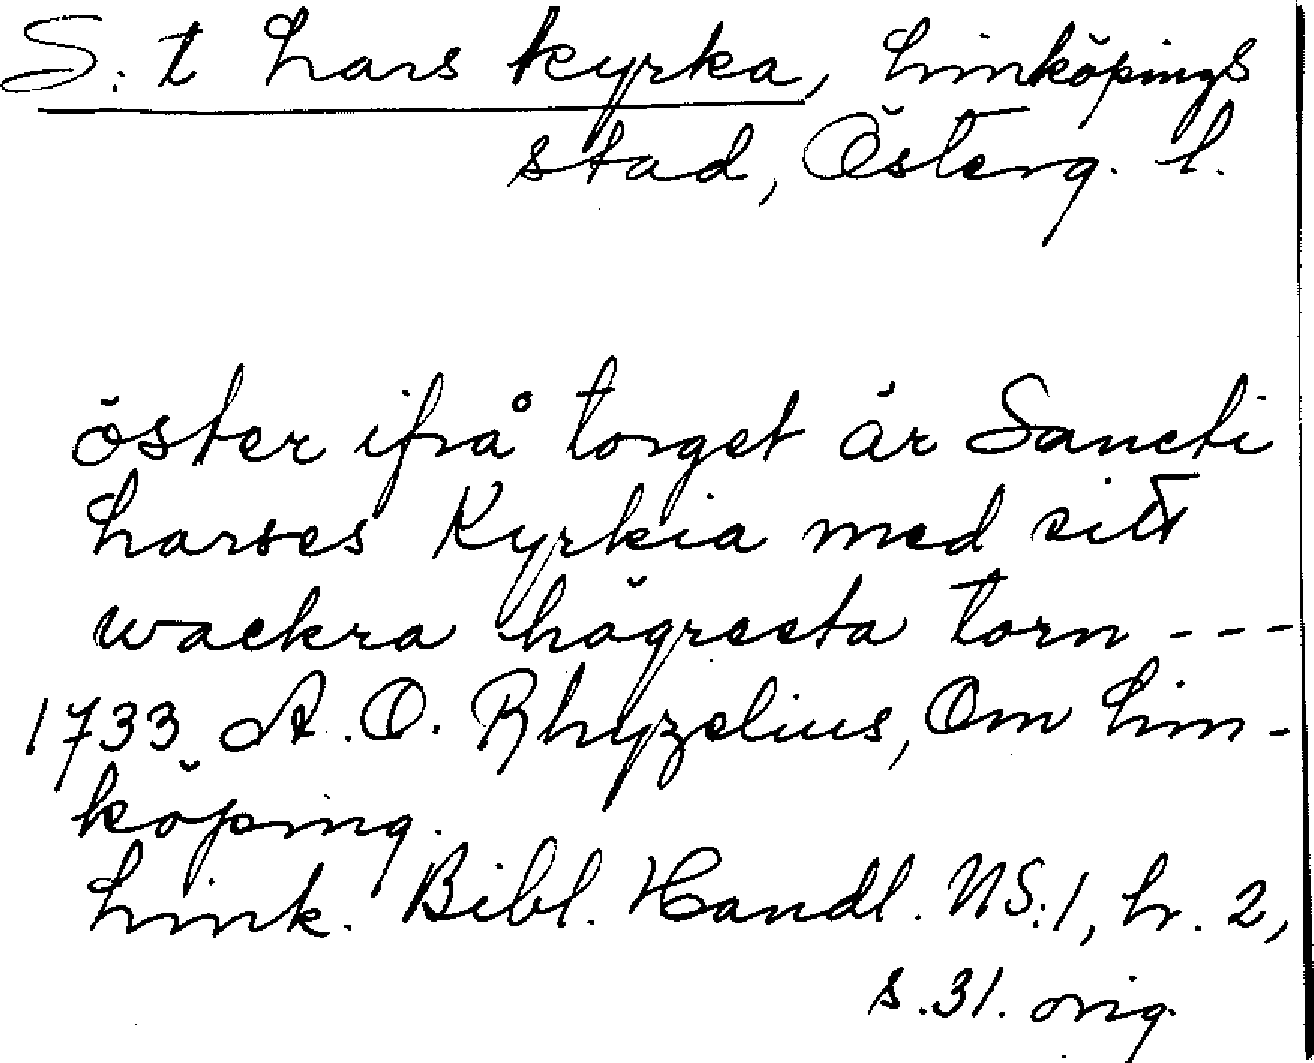 S:t Lars kyrka, Linköpings
stad, Österg. l.
öster ifrå torget är Sancti
Larses Kyrkia med sitt
wackra högresta torn ---
1733 A. O. Rhyzelius, Om Lin-
köping.
Link. Bibl. Handl. NS:1, h. 2,
s. 31. orig.